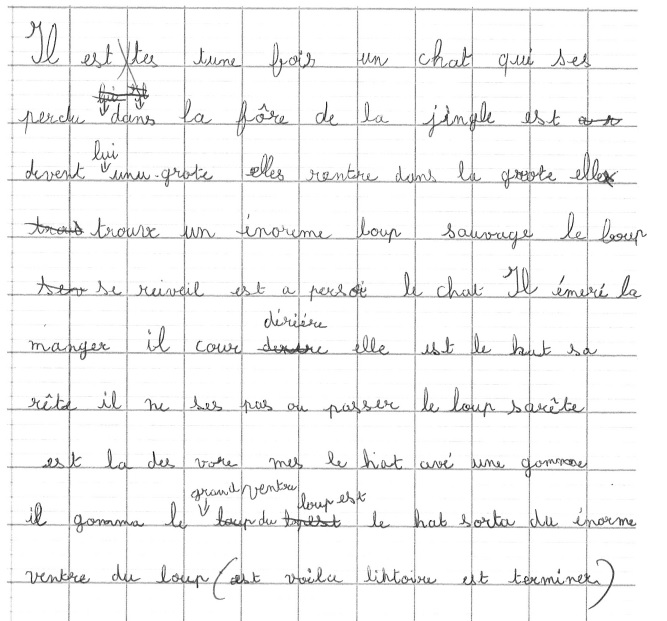 Il est tes tune fois un chat qui ses
perdu dans la fôre de la jingle est
devent lui unu-grote elles rentre dans la grote elle
trouve un énoreme loup sauvage le loup
se reiveil est a persoi le chat Il émeré la
manger il cour dériére elle est le hut sa
rête il ne ses pas ou passer le loup sarête
est la des vore mes le hat avé une gomme
il gomma le grand ventre du loup est le hat sorta du énorme
ventre du loup (est voila lihtoire est terminer)